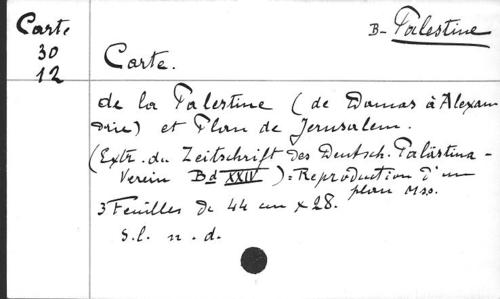 Carte
30
12
B- Palestine
Carte.
de la Palestine (de Damas à Alexan
drie) et Plan de Jerusalem.
(Extr. du Zeitschrift des Deutsch. Palästina-
Verein Bd XXIV) = Reproduction d'un
plan Mss.
3 Feuilles de 44 cm x 28.
S.l. n.d.